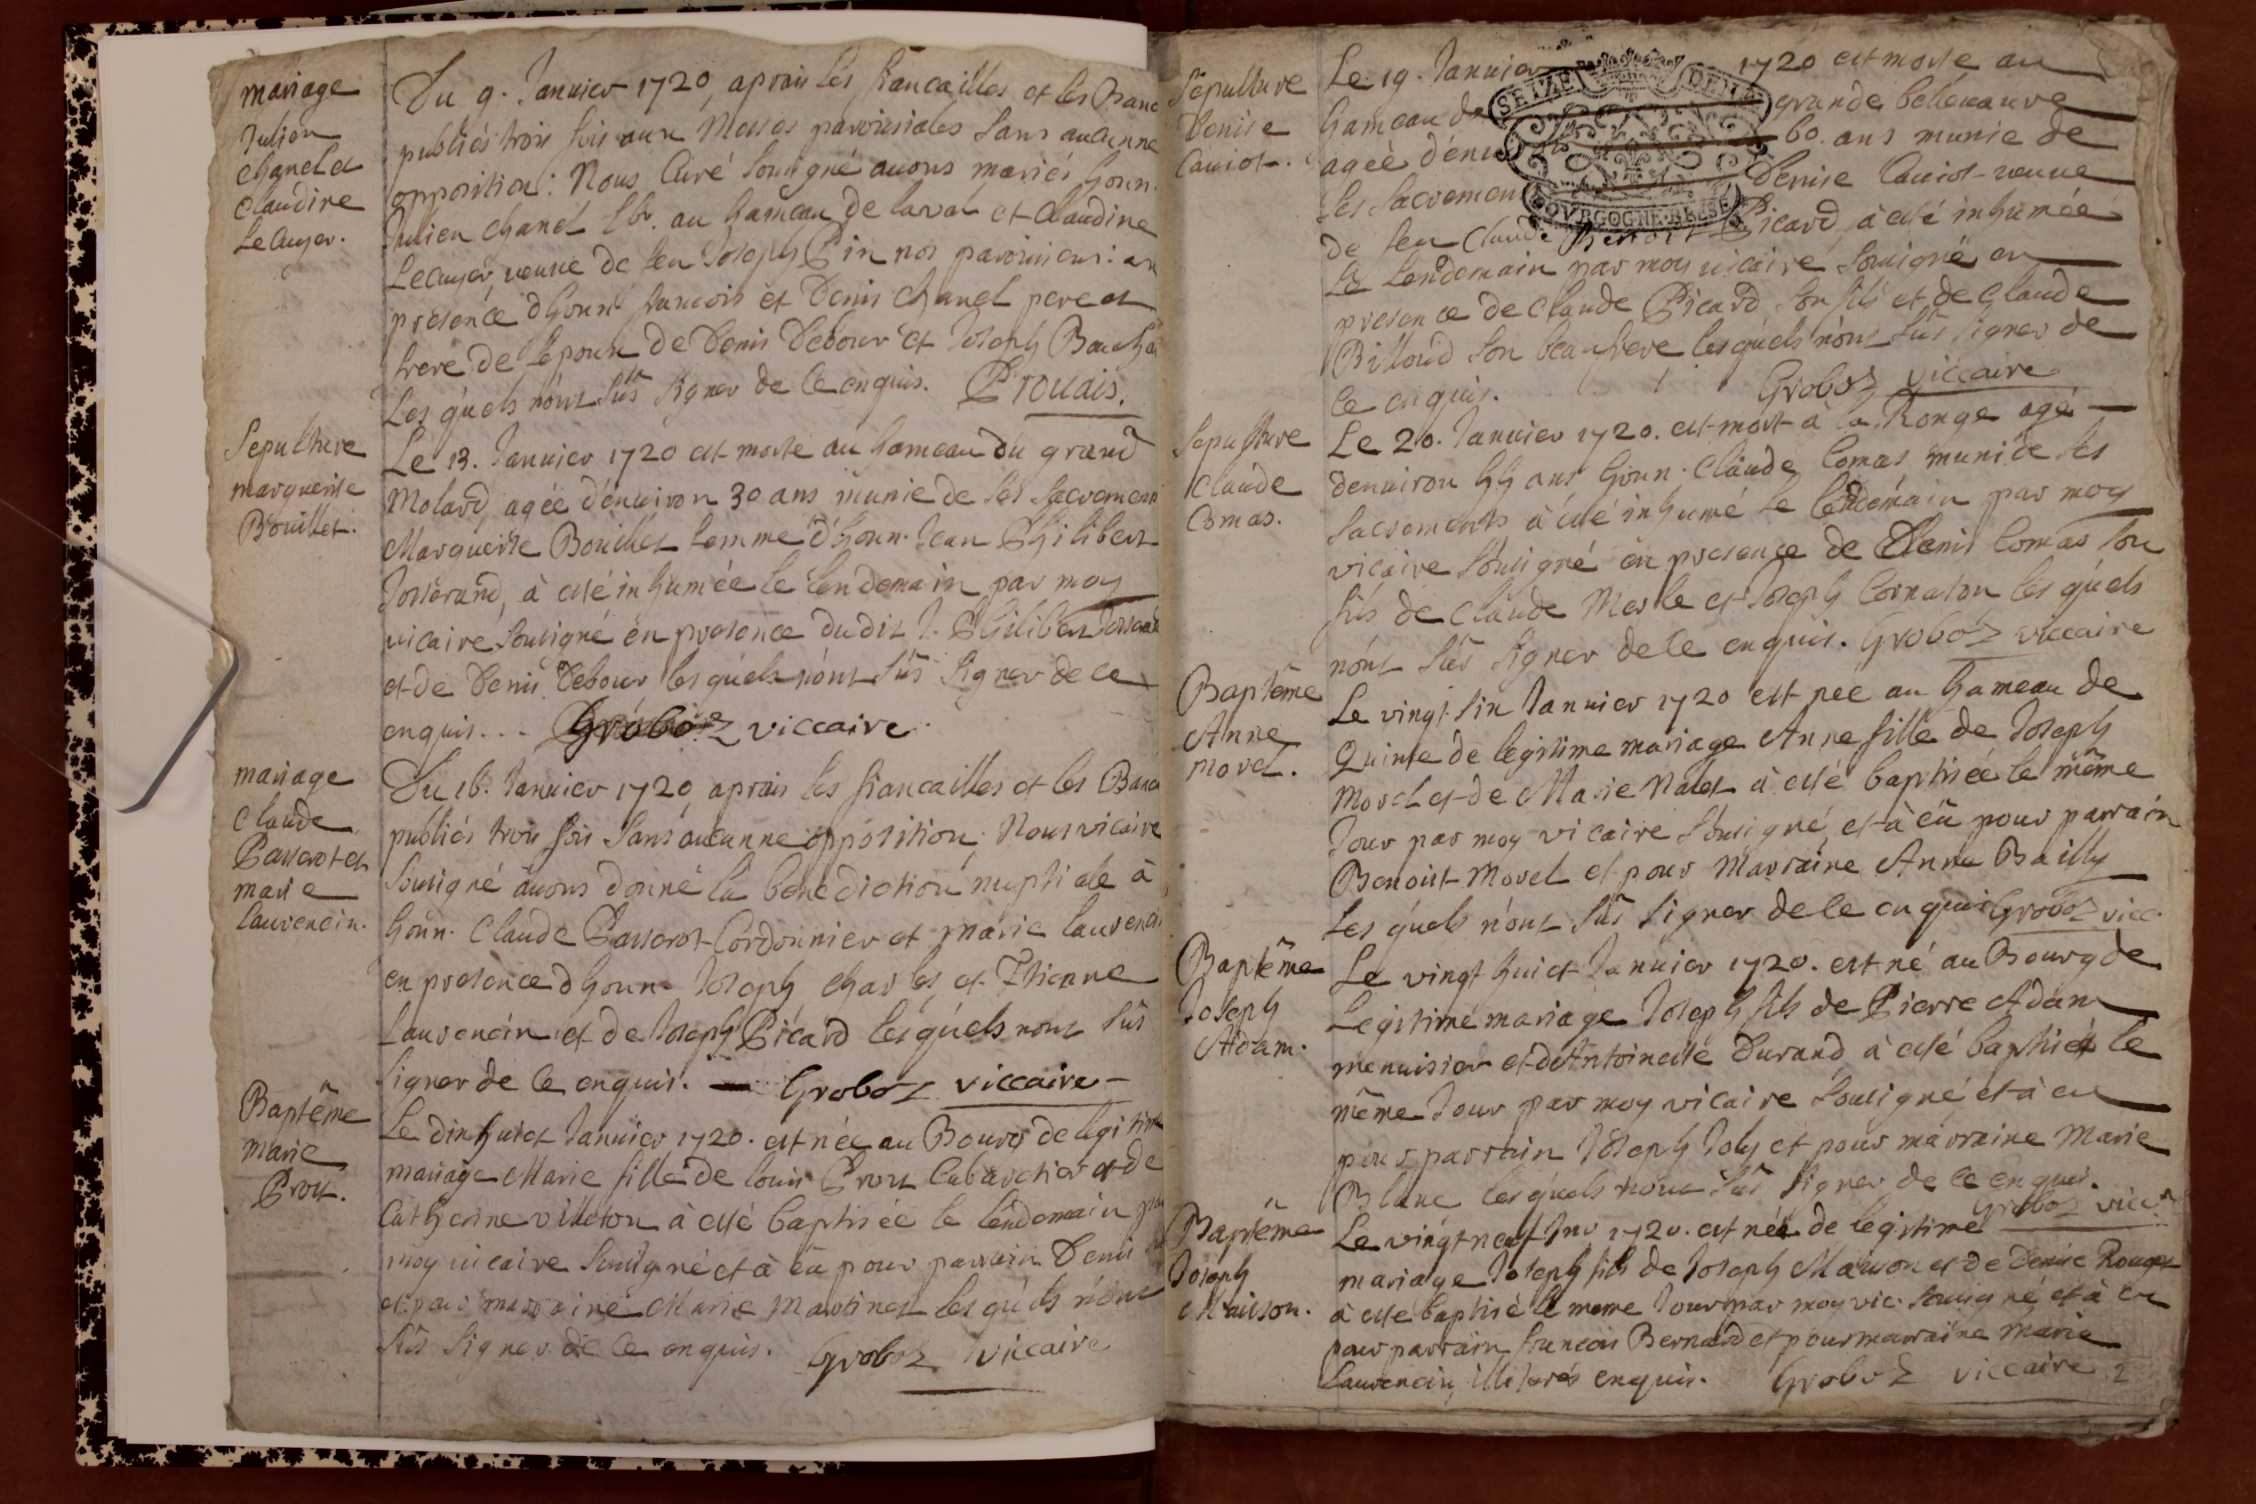 mariage
Julien
chanel et
Claudine
Lecuyer.
Du 9. Janvier 1720, aprais les fiancailles et les Banc
publiés trois fois aux Messes paroissiales sans aucunne
opposition : Nous Curé soussigné avons mariés honn.
Julien chanel lbr. au hameau de laval et Claudine
Lecuyer, veuve de feu Joseph Pin nos paroissiens : en
presence d'honn. francois et Denis chanel pere et
frere de lepoux de Denis Debour et Joseph
Les quels n'ont sûs signer de ce enquis. Prouais.
Sepulture
marguerite
Bouillet.
Le 13. Janvier 1720 est morte au hameau du grand
Molard, agée d'environ 30 ans munie de ses sacremens
Marguerite Bouillet femme d'honn. Jean Philibert
Josserand, à esté inhumée le lendemain par moy
vicaire soussigné en presence dudit J. Philibert Josserand
et de Denis Debour les quels n'ont sûs signer de ce
enquis... Groboz viccaire.
mariage
Claude
Passerot et
marie
laurencin.
Du 16. Janvier 1720, aprais les fiancailles et les Banc
publiés trois fois sans aucunne opposition ; Nous vicaire
soussigné avons donné la benediction nuptiale à
honn. Claude Passerot Cordonnier et marie laurencin
en presence d'honn. Joseph, charles, et Etienne
laurencin et de Joseph Picard les quels n'ont sûs
signer de ce enquis. — Groboz viccaire —
Baptême
marie
Prost.
Le dix huict Janvier 1720. est née au Bourg de legitime
mariage Marie fille de louis Prost Cabaretier et de
Catherine villeton à esté baptisée le lendemain par
moy vicaire soussigné et à eû pour parrain Denis
et pour marraine Marie Martinet les quels n'ont
sûs signer de ce enquis. Groboz viccaire
Sepulture
Denise
Caviot.
Le 19. Janvier 1720 est morte au
hameau de grande bellevavre
agée d'envi 60. ans munie de
ses sacremen Denise Caviot veuve
de feu Claude Benoit Picard, à esté inhumée
le lendemain par moy vicaire soussigné en
presence de Claude Picard son fils et de Claude
Billoud son beaufrere les quels n'ont sûs signer de
ce enquis. Groboz viccaire
SEIZE DENIERS
BOURGOGNE BRESSE
Sepulture
Claude
Comas.
Le 20. Janvier 1720. est mort à la Ronge agé
denviron 44 ans honn. Claude Comas muni de ses
sacrements à esté inhumé le lendemain par moy
vicaire soussigné en presence de Denis Comas son
fils de Claude Merle et Joseph Cornaton les quels
n'ont sûs signer de ce enquis. Groboz viccaire
Baptême
Anne
Morel.
Le vingt six Janvier 1720 est née au hameau de
Quinte de legitime mariage Anne fille de Joseph
Morel et de Marie Nalet à esté baptisée le même
Jour par moy vicaire soussigné, et à eû pour parrain
Benoist Morel et pour Marraine Anne Bailly
Les quels n'ont sûs signer de ce enquis Groboz vicc.
Baptême
Joseph
Adam.
Le vingt huict Janvier 1720. est né au Bourg de
Legitime mariage Joseph fils de Pierre Adam
menuisier et d'Antoinette Durand à esté baptisé le
même Jour par moy vicaire soussigné et à eu
pour parrain Joseph Joly et pour marraine Marie
Blanc les quels n'ont sûs signer de ce enquis.
Groboz vicc.
Baptême
Joseph
Maisson.
Le vingt neuf Jnv 1720. est né de legitime
mariage Joseph fils de Joseph Maisson et de Denise
à esté baptisé le meme Jour par moy vic. soussigné et à eu
pour parrain francois Bernard et pour marraine Marie
laurencin illiterés enquis. Groboz viccaire 2